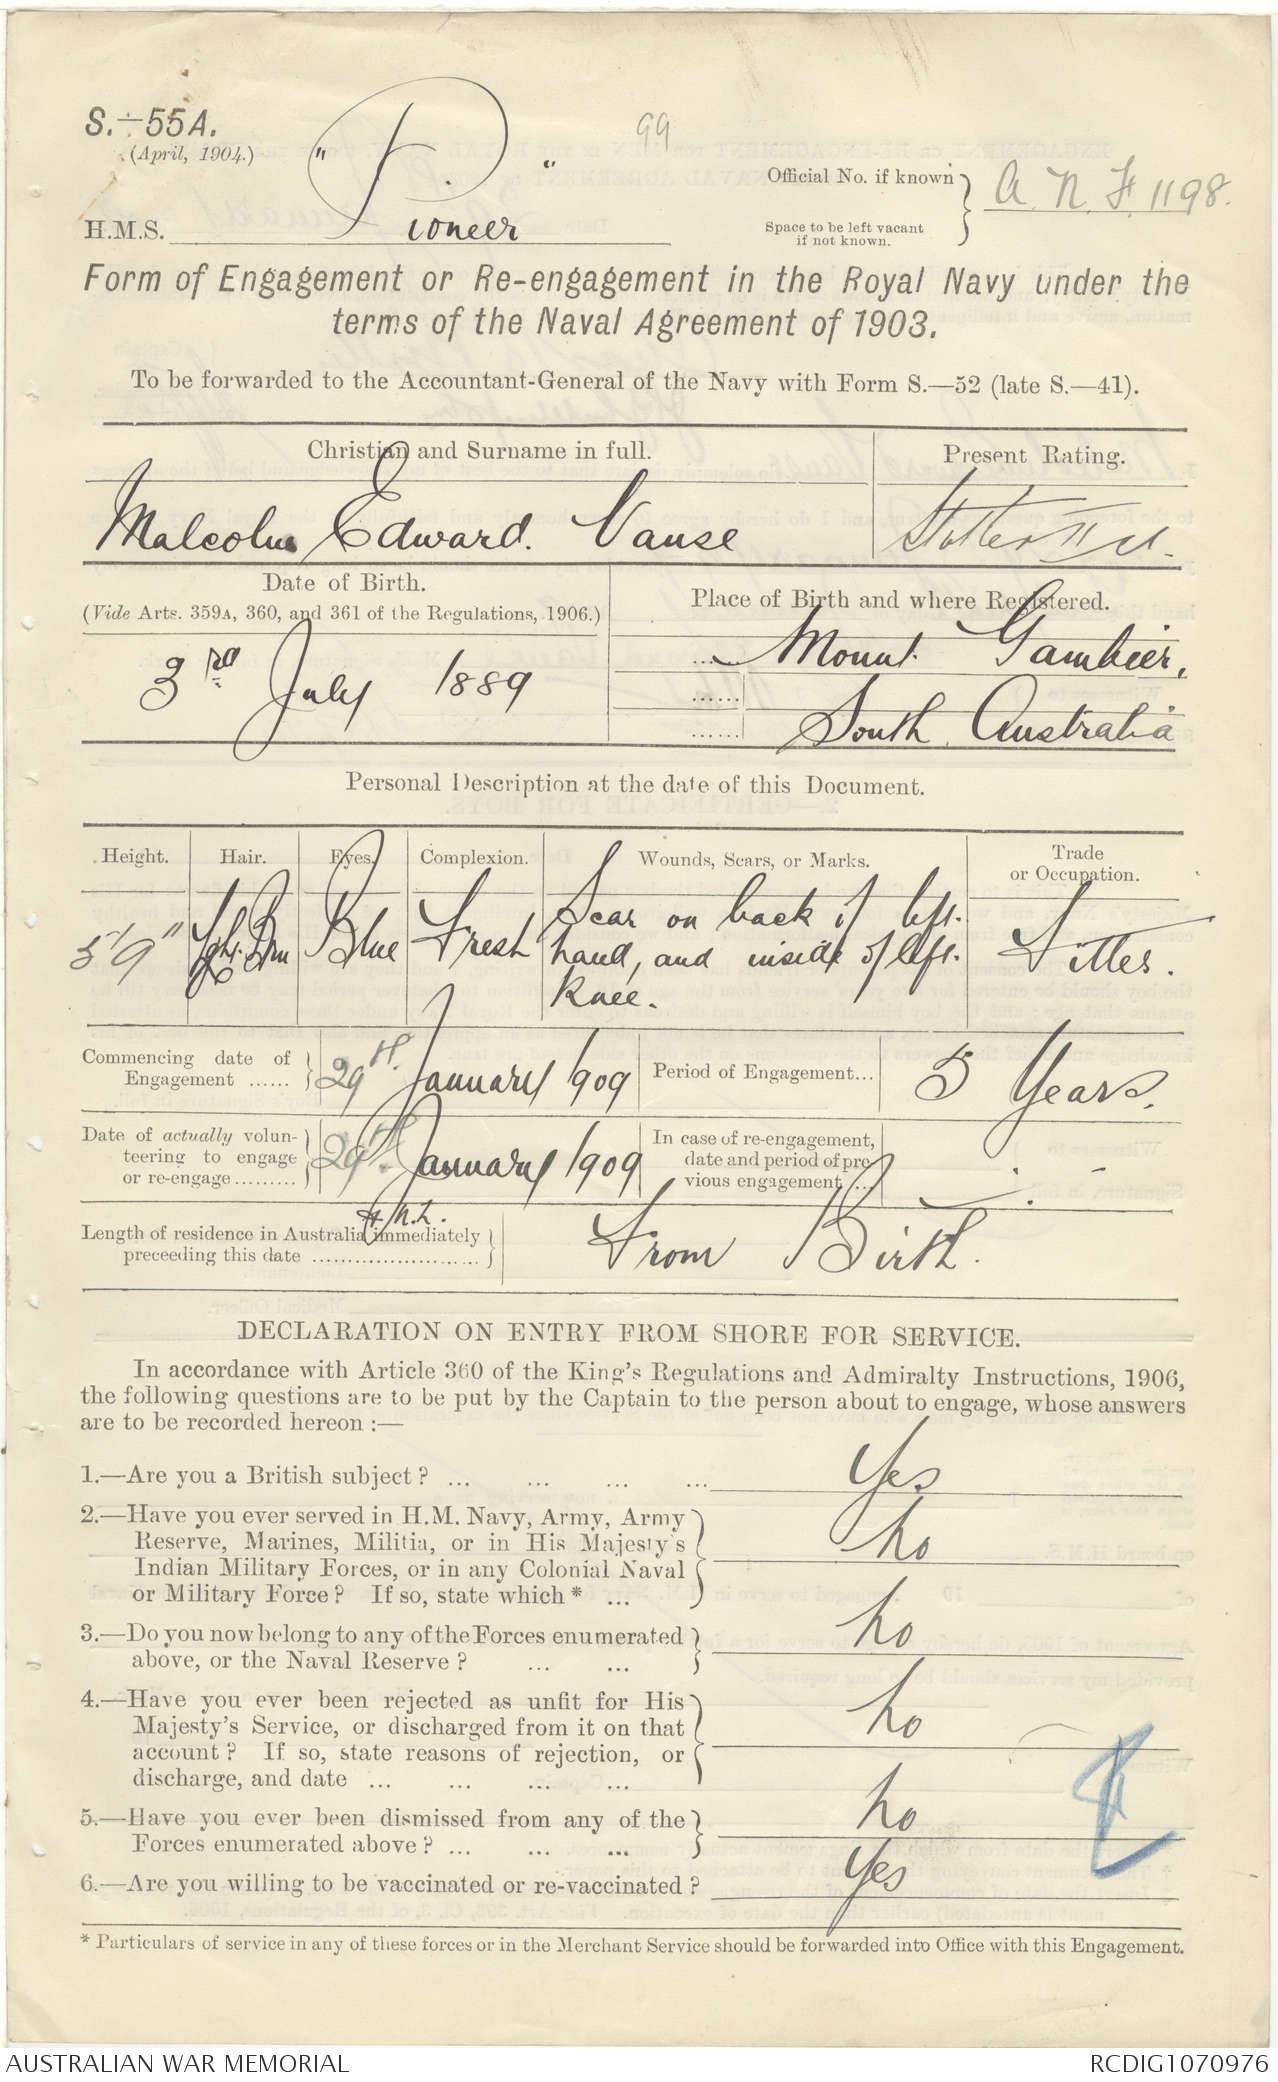 S.—55A.
(April, 1904.)
99
Official No. if known
A. N. F. 1198.
Space to be left vacant
if not known.
H.M.S. "Pioneer"
Form of Engagement or Re-engagement in the Royal Navy under the
terms of the Naval Agreement of 1903.
To be forwarded to the Accountant-General of the Navy with Form S.—52 (late S.—41).
Christian and Surname in full.
Present Rating.
Malcolm Edward. Vause
Stoker II Cl.
Date of Birth.
(Vide Arts. 359A, 360, and 361 of the Regulations, 1906.)
Place of Birth and where Registered.
3rd July 1889
Mount Gambier,
South Australia
Personal Description at the date of this Document.
Height. Hair. Eyes. Complexion. Wounds, Scars, or Marks. Trade
or Occupation.
5'9" Lght. Brn Blue Fresh Scar on back of left. hand, and inside of left. knee. Fitter.
Commencing date of
Engagement ......
29th. January 1909
Period of Engagement...
5 Years.
Date of actually volun-
teering to engage
or re-engage.........
29th. January 1909
In case of re-engagement,
date and period of pre-
vious engagement ...
Length of residence in Australia immediately
preceeding this date ........................
From Birth.
DECLARATION ON ENTRY FROM SHORE FOR SERVICE.
In accordance with Article 360 of the King's Regulations and Admiralty Instructions, 1906,
the following questions are to be put by the Captain to the person about to engage, whose answers
are to be recorded hereon :—
1.—Are you a British subject ? ... ... ... ... Yes
2.—Have you ever served in H.M. Navy, Army, Army
Reserve, Marines, Militia, or in His Majesty's
Indian Military Forces, or in any Colonial Naval
or Military Force ? If so, state which * ...
No
3.—Do you now belong to any of the Forces enumerated
above, or the Naval Reserve ? ... ...
No
4.—Have you ever been rejected as unfit for His
Majesty's Service, or discharged from it on that
account ? If so, state reasons of rejection, or
discharge, and date ... ... ... ...
No
5.—Have you ever been dismissed from any of the
Forces enumerated above ? ... ... ...
No
6.—Are you willing to be vaccinated or re-vaccinated ? Yes
* Particulars of service in any of these forces or in the Merchant Service should be forwarded into Office with this Engagement.
AUSTRALIAN WAR MEMORIAL
RCDIG1070976